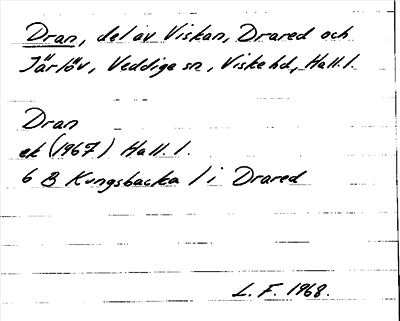 Dran, del av Viskan, Drared och
Järlöv, Veddige sn, Viske hd, Hall. l.
Dran
ek (1967) Hall. l.
6 B Kungsbacka / i Drared
L. F. 1968.